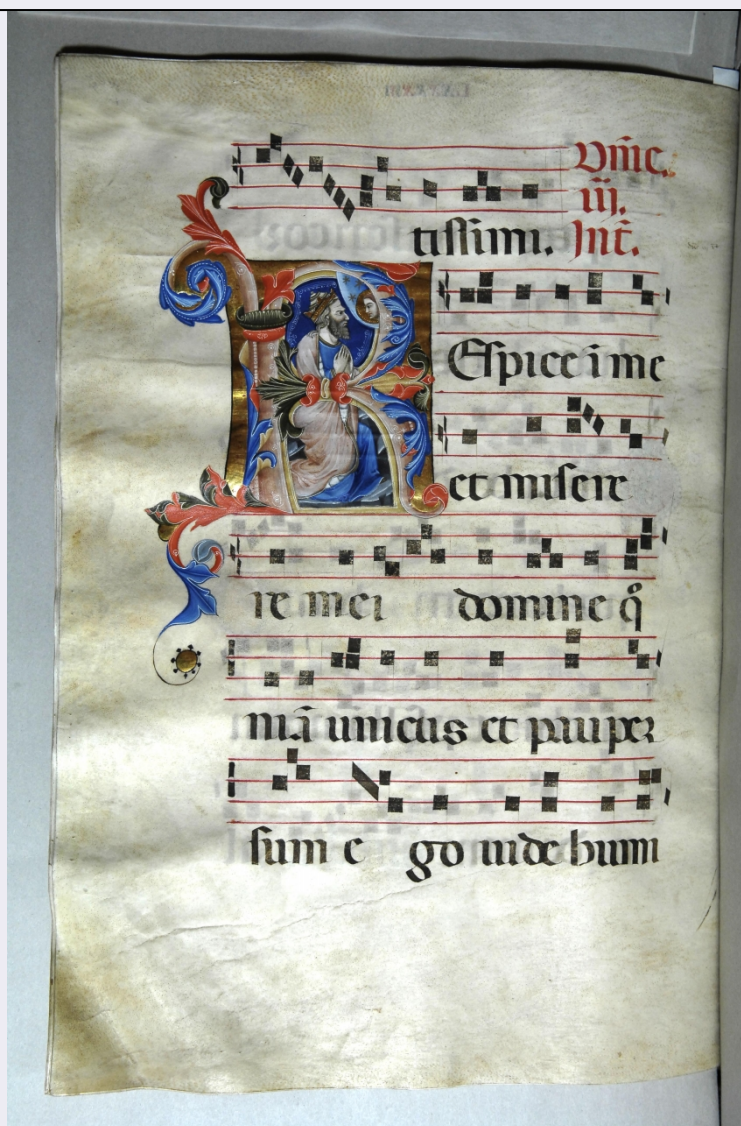 Dn̄ic.
iij.
tissimi. Int̄.
REspice i me
et misere
re mei domine qº
niā unicus et pauper
sum e go uide humi